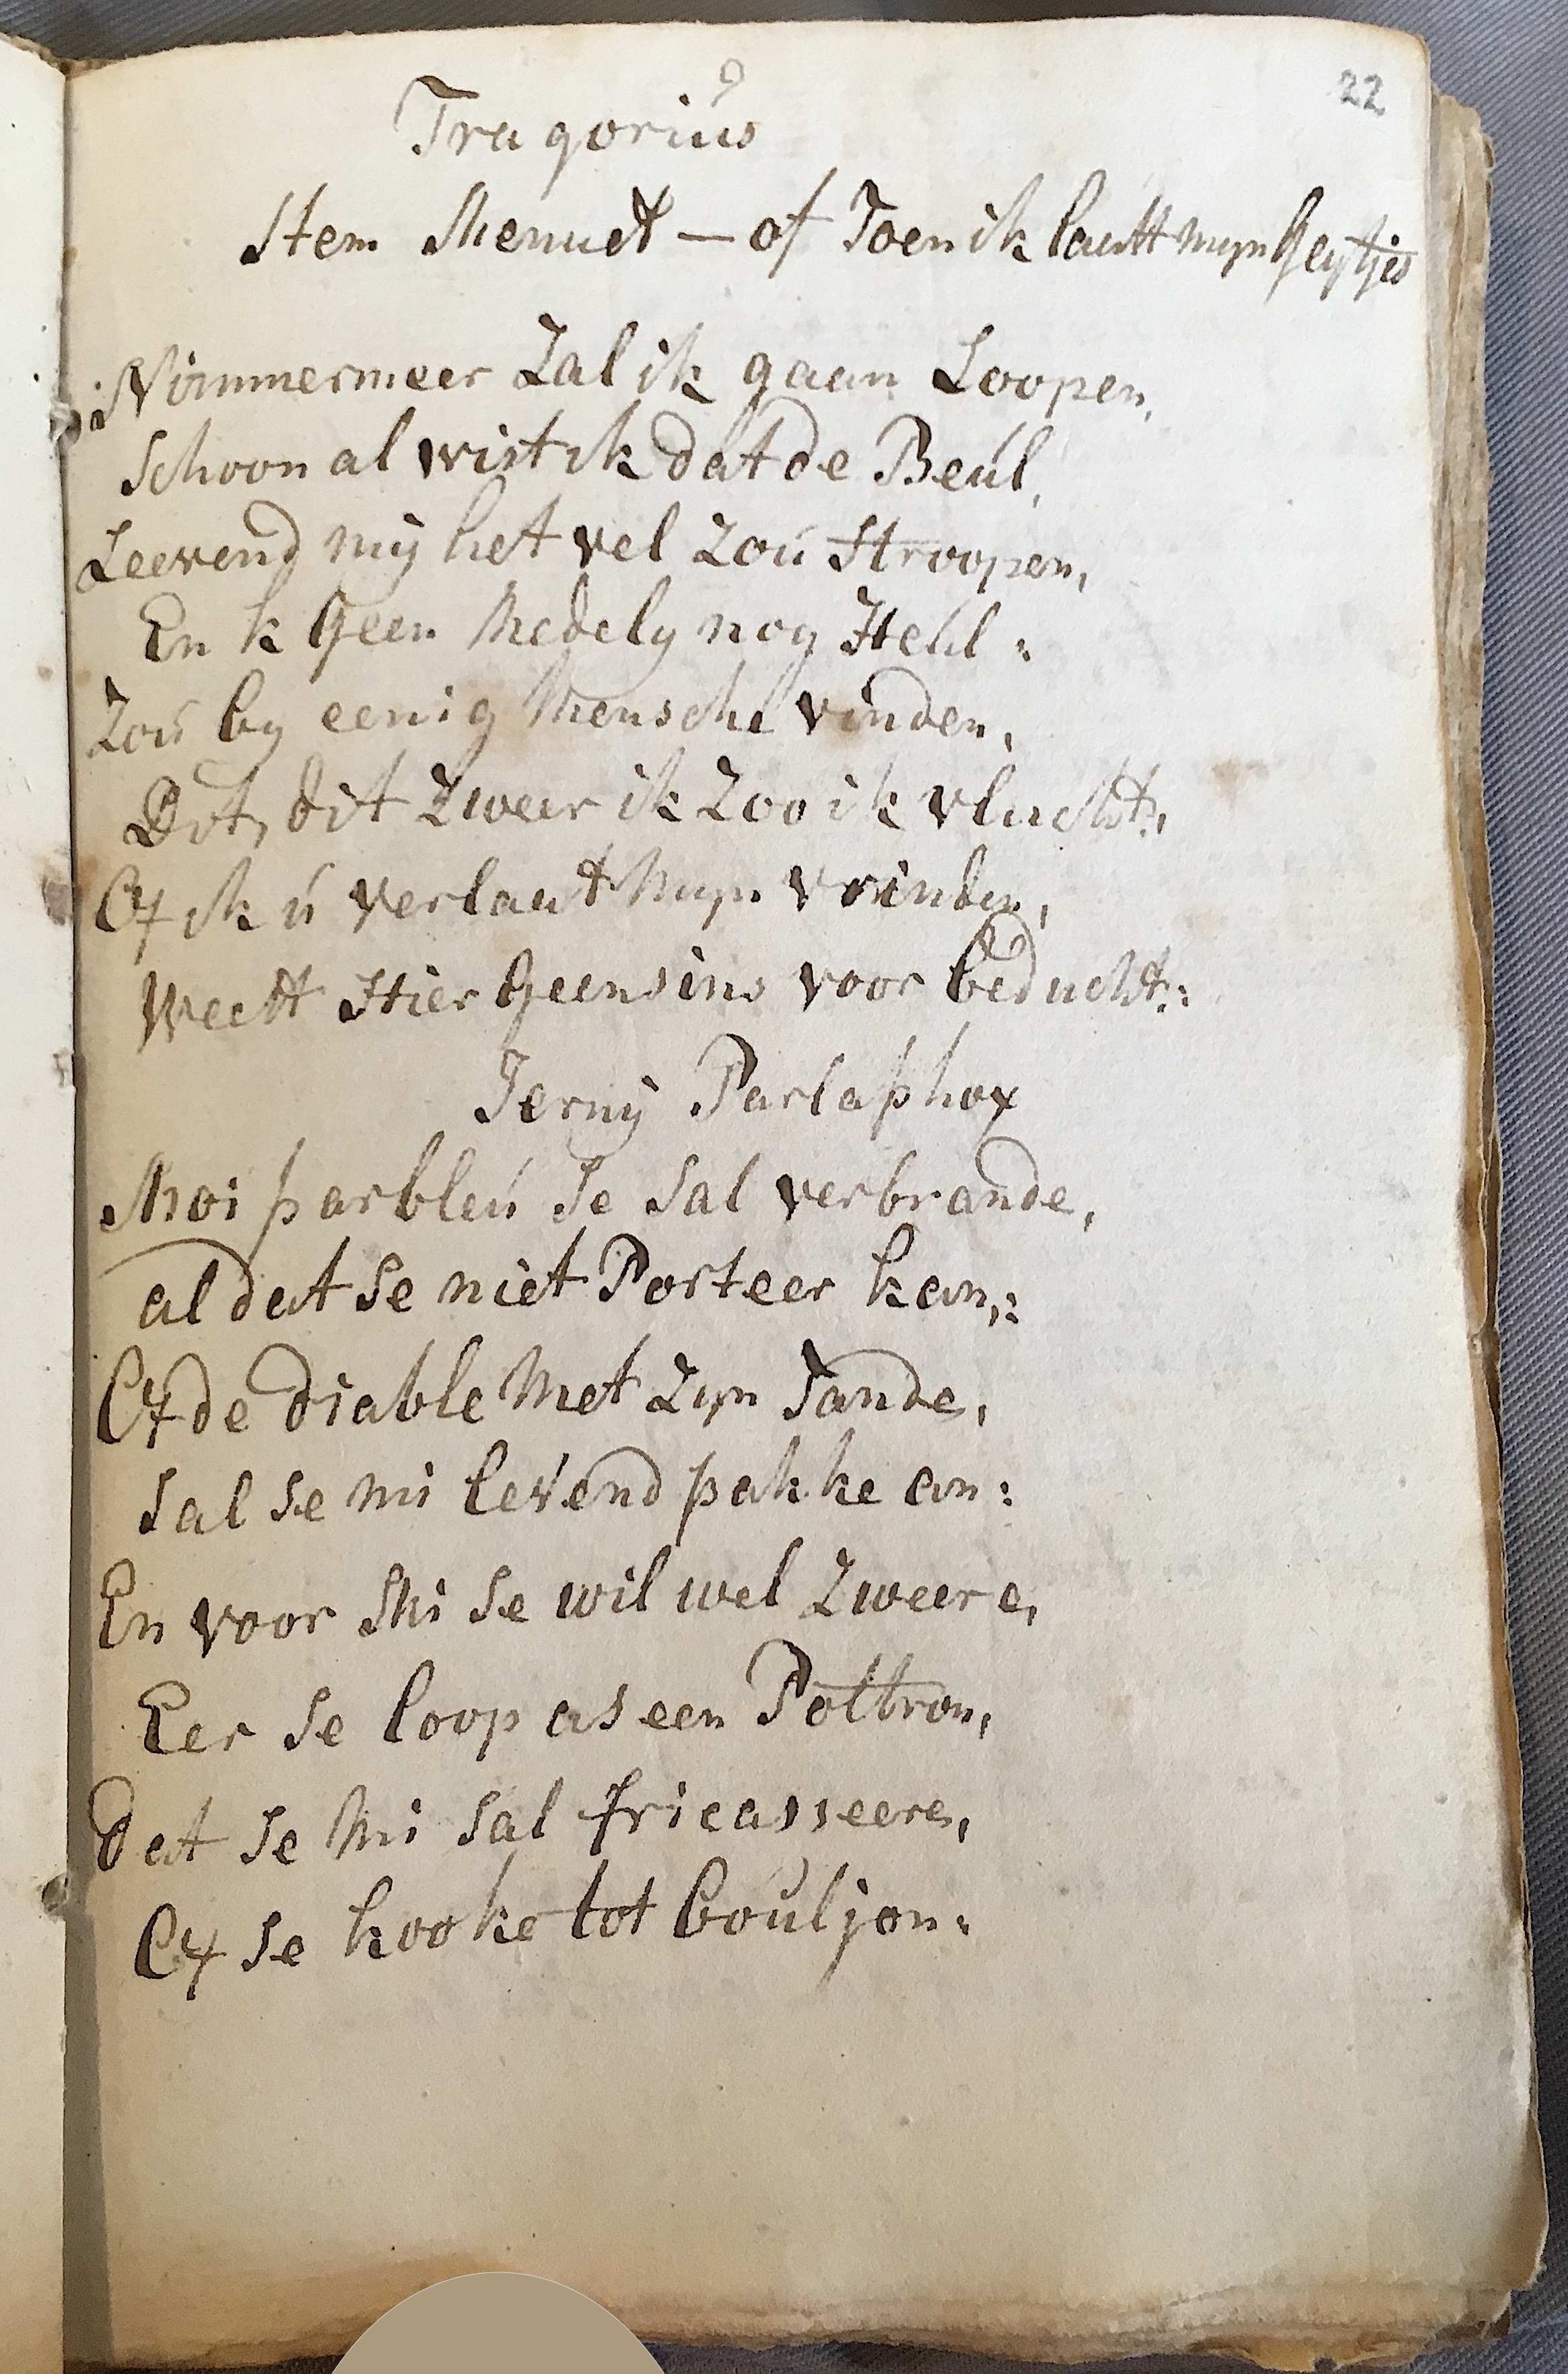 22
Tragorius
Stem Menuet — of Toen ik laatt myn Geytjes
Nimmermeer Zal ik gaan Loopen,
Schoon al wist ik dat de Beul,
Leevend mÿ het vel Zou Stroopen,
En k Geen Medely nog Heul :
Zou by eenig Mensche vinden,
Dit, dit Zweer ik Zoo ik vlucht,
Of ik u verlaat Myn vrinden,
Weett Hier Geensins voor beducht :
Jernÿ Parlaphox
Moi parbleu Se Sal verbrande,
al dat Se niet Porteer kan,:
Of de diable Met Zyn Tande,
Sal Se mi levend pakke an :
En voor Mi Se wil wel Zweere,
Eer Se loop as een Poltron,
dat Se Mi Sal fricasseere,
Of Se kooke tot bouljon :